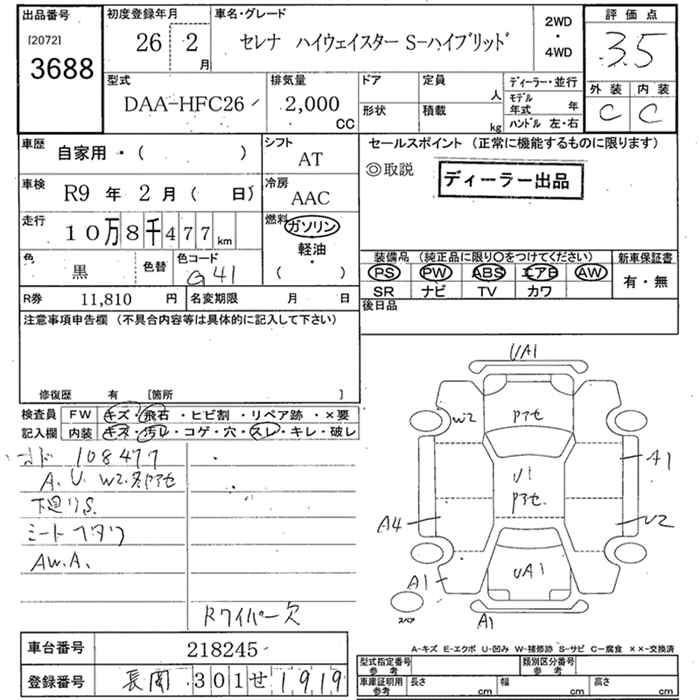 出品番号 初度登録年月 車名・グレード 評価点
[2072] 3688
26 2月 セレナ ハイウェイスター S-ハイブリッド 2WD・4WD 3.5
型式 排気量 ドア 定員 人 ディーラー・並行 外装 内装
DAA-HFC26 2,000 CC 形状 積載 kg モデル年式 年 C C
ハンドル 左・右
車歴 自家用・( ) シフト AT セールスポイント (正常に機能するものに限ります)
◎取説 ディーラー出品
車検 R9 年 2 月 ( 日) 冷房 AAC
走行 10万8千477km 燃料 ガソリン
軽油
・
( )
色 黒 色替 色コード G41
装備品 (純正品に限り○をつけてください) 新車保証書
PS PW ABS エアB AW 有・無
SR ナビ TV カワ
R券 11,810 円 名変期限 月 日 後日品
注意事項申告欄 (不具合内容等は具体的に記入して下さい)
修復歴 有 [箇所 ]
検査員 FW キズ・飛石・ヒビ割・リペア跡・×要
記入欄 内装 キズ・汚レ・コゲ・穴・スレ・キレ・破レ
108477
A. U. W2.
下廻りS.
シートフタワ
AW.A.
Rワイパー欠
UA1
W2 アセ
U1 A1
アセ
A4 U2
A1 UA1
スペア A1
A-キズ E-エクボ U-凹み W-補修跡 S-サビ C-腐食 ××-交換済
車台番号 218245
登録番号 長岡 301 せ 1919
型式指定番号 参考 類別区分番号 参考
車庫証明用 参考 長さ cm 幅 cm 高さ cm